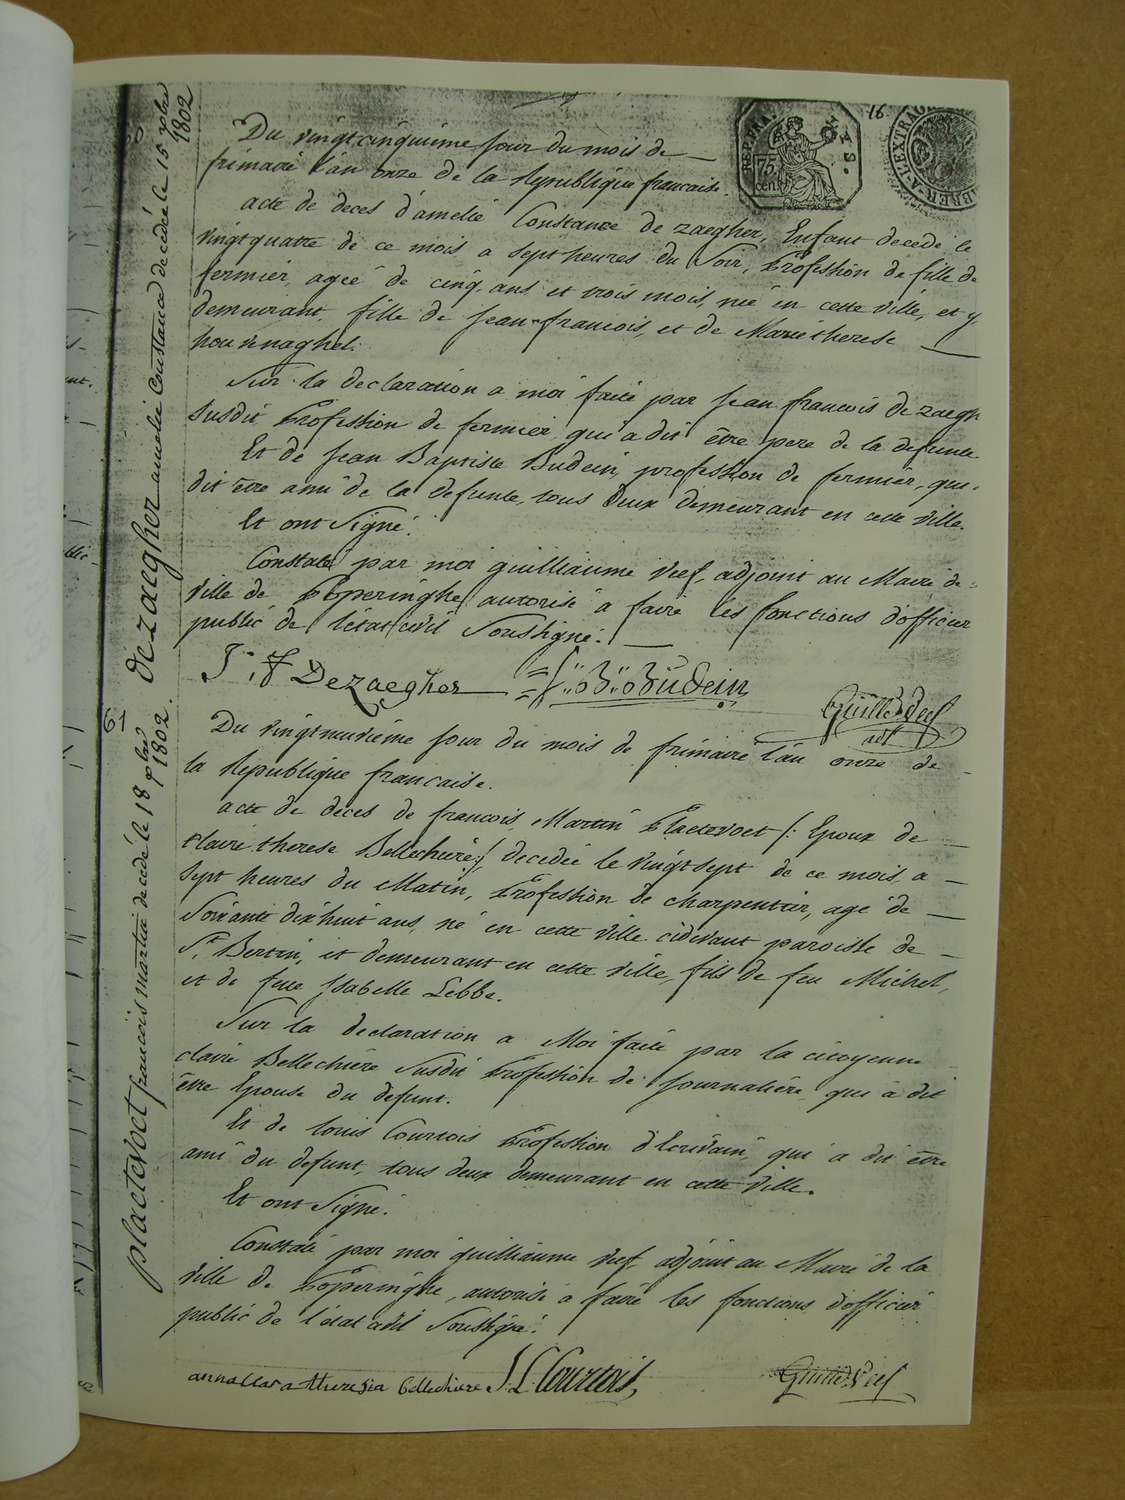 16
REP. FRA
75
cent
A L'EXTRAO
dezaegher amelie Constance decedée le 15 xbre
1802
Du vingtcinquieme jour du mois de
frimaire l'an onze de la Republique francaise.
acte de deces d'amelie Constance de zaegher, Enfant decedé le
vingtquatre de ce mois a sept heures du Soir, Profession de fille de
fermier, ageé de cinq ans et trois mois, neé en cette ville, et y
demeurant, fille de Jean-francois, et de Marie therese
houvenaghel.
Sur la declaration a moi faite par Jean francois de zaegh
susdit Profession de fermier qui a dit être pere de la defunte
Et de Jean Baptiste Budein, profession de fermier, qui
dit être ami de la defunte, tous deux demeurant en cette ville.
Et ont Signé.
Constaté par moi guilliaume Veef, adjoint au Maire de
ville de Poperinghe, autorisé a faire les fonctions d'officier
public de l'état civil Soussigné.
J. F Dezaegher J: B: Budein
Guille Veef
adt
61
plactevoet francois martin decedé le 18 xbre
1802.
Du vingtneuvieme jour du mois de frimaire l'an onze de
la Republique francaise.
acte de deces de francois Martin Plactevoet /: Epoux de
Claire therese Bellechiere :/ decedée le vingtsept de ce mois, a
Sept heures du Matin, Profession de charpentier, agé de
Soixante dixhuit ans, né en cette ville cidevant paroisse de
St. Bertin, et demeurant en cette ville, fils de feu Michel,
et de feue Isabelle Lebbe.
Sur la declaration a Moi faite par la citoyenne
claire Bellechiere susdit Profession de Journaliére, qui a dit
être Epouse du defunt.
Et de louis Courtois Profession d'Ecrivain, qui a dit être
ami du defunt, tous deux demeurant en cette ville.
Et ont Signé.
Constaté par moi guilliaume Veef adjoint au Maire de la
ville de Poperinghe, autorisé a faire les fonctions d'officier
public de l'état civil Soussigné.
anna clara theresia bellechiere J. L. Courtois,
Guille Veef